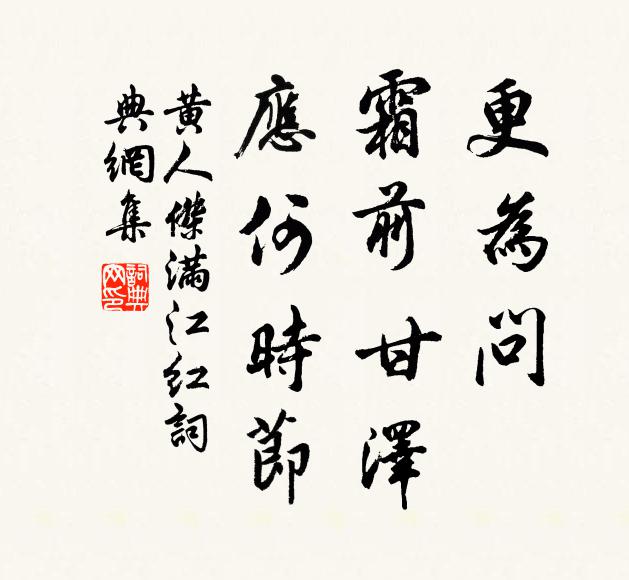 更為問
霜前甘澤
應何時節
黄人傑滿江红詞
典網集
詞典网印